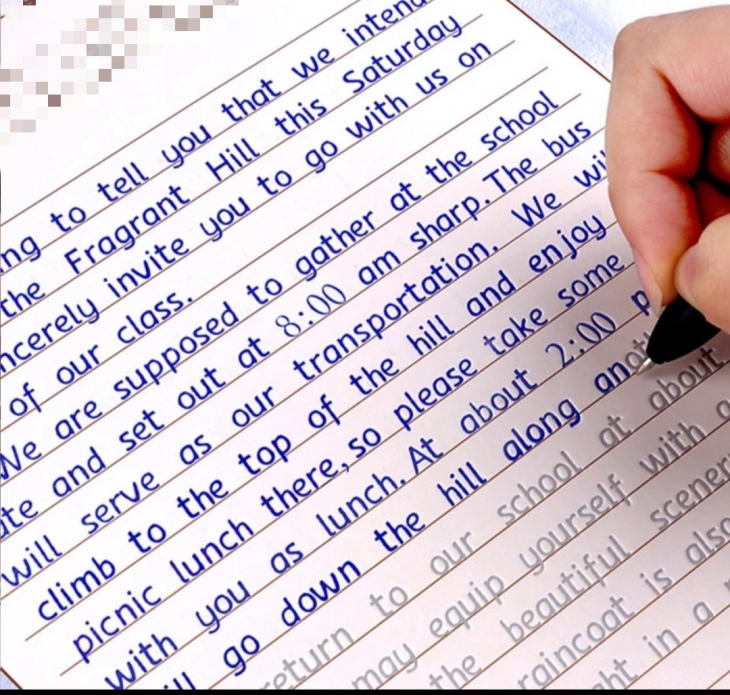 ng to tell you that we intend
the Fragrant Hill this Saturday
ncerely invite you to go with us on
of our class.
We are supposed to gather at the school
te and set out at 8:00 am sharp. The bus
will serve as our transportation. We wil
climb to the top of the hill and enjoy
picnic lunch there, so please take some
with you as lunch. At about 2:00 p
ill go down the hill along anoth
eturn to our school at about
may equip yourself with a
the beautiful scener
raincoat is also
ht in a